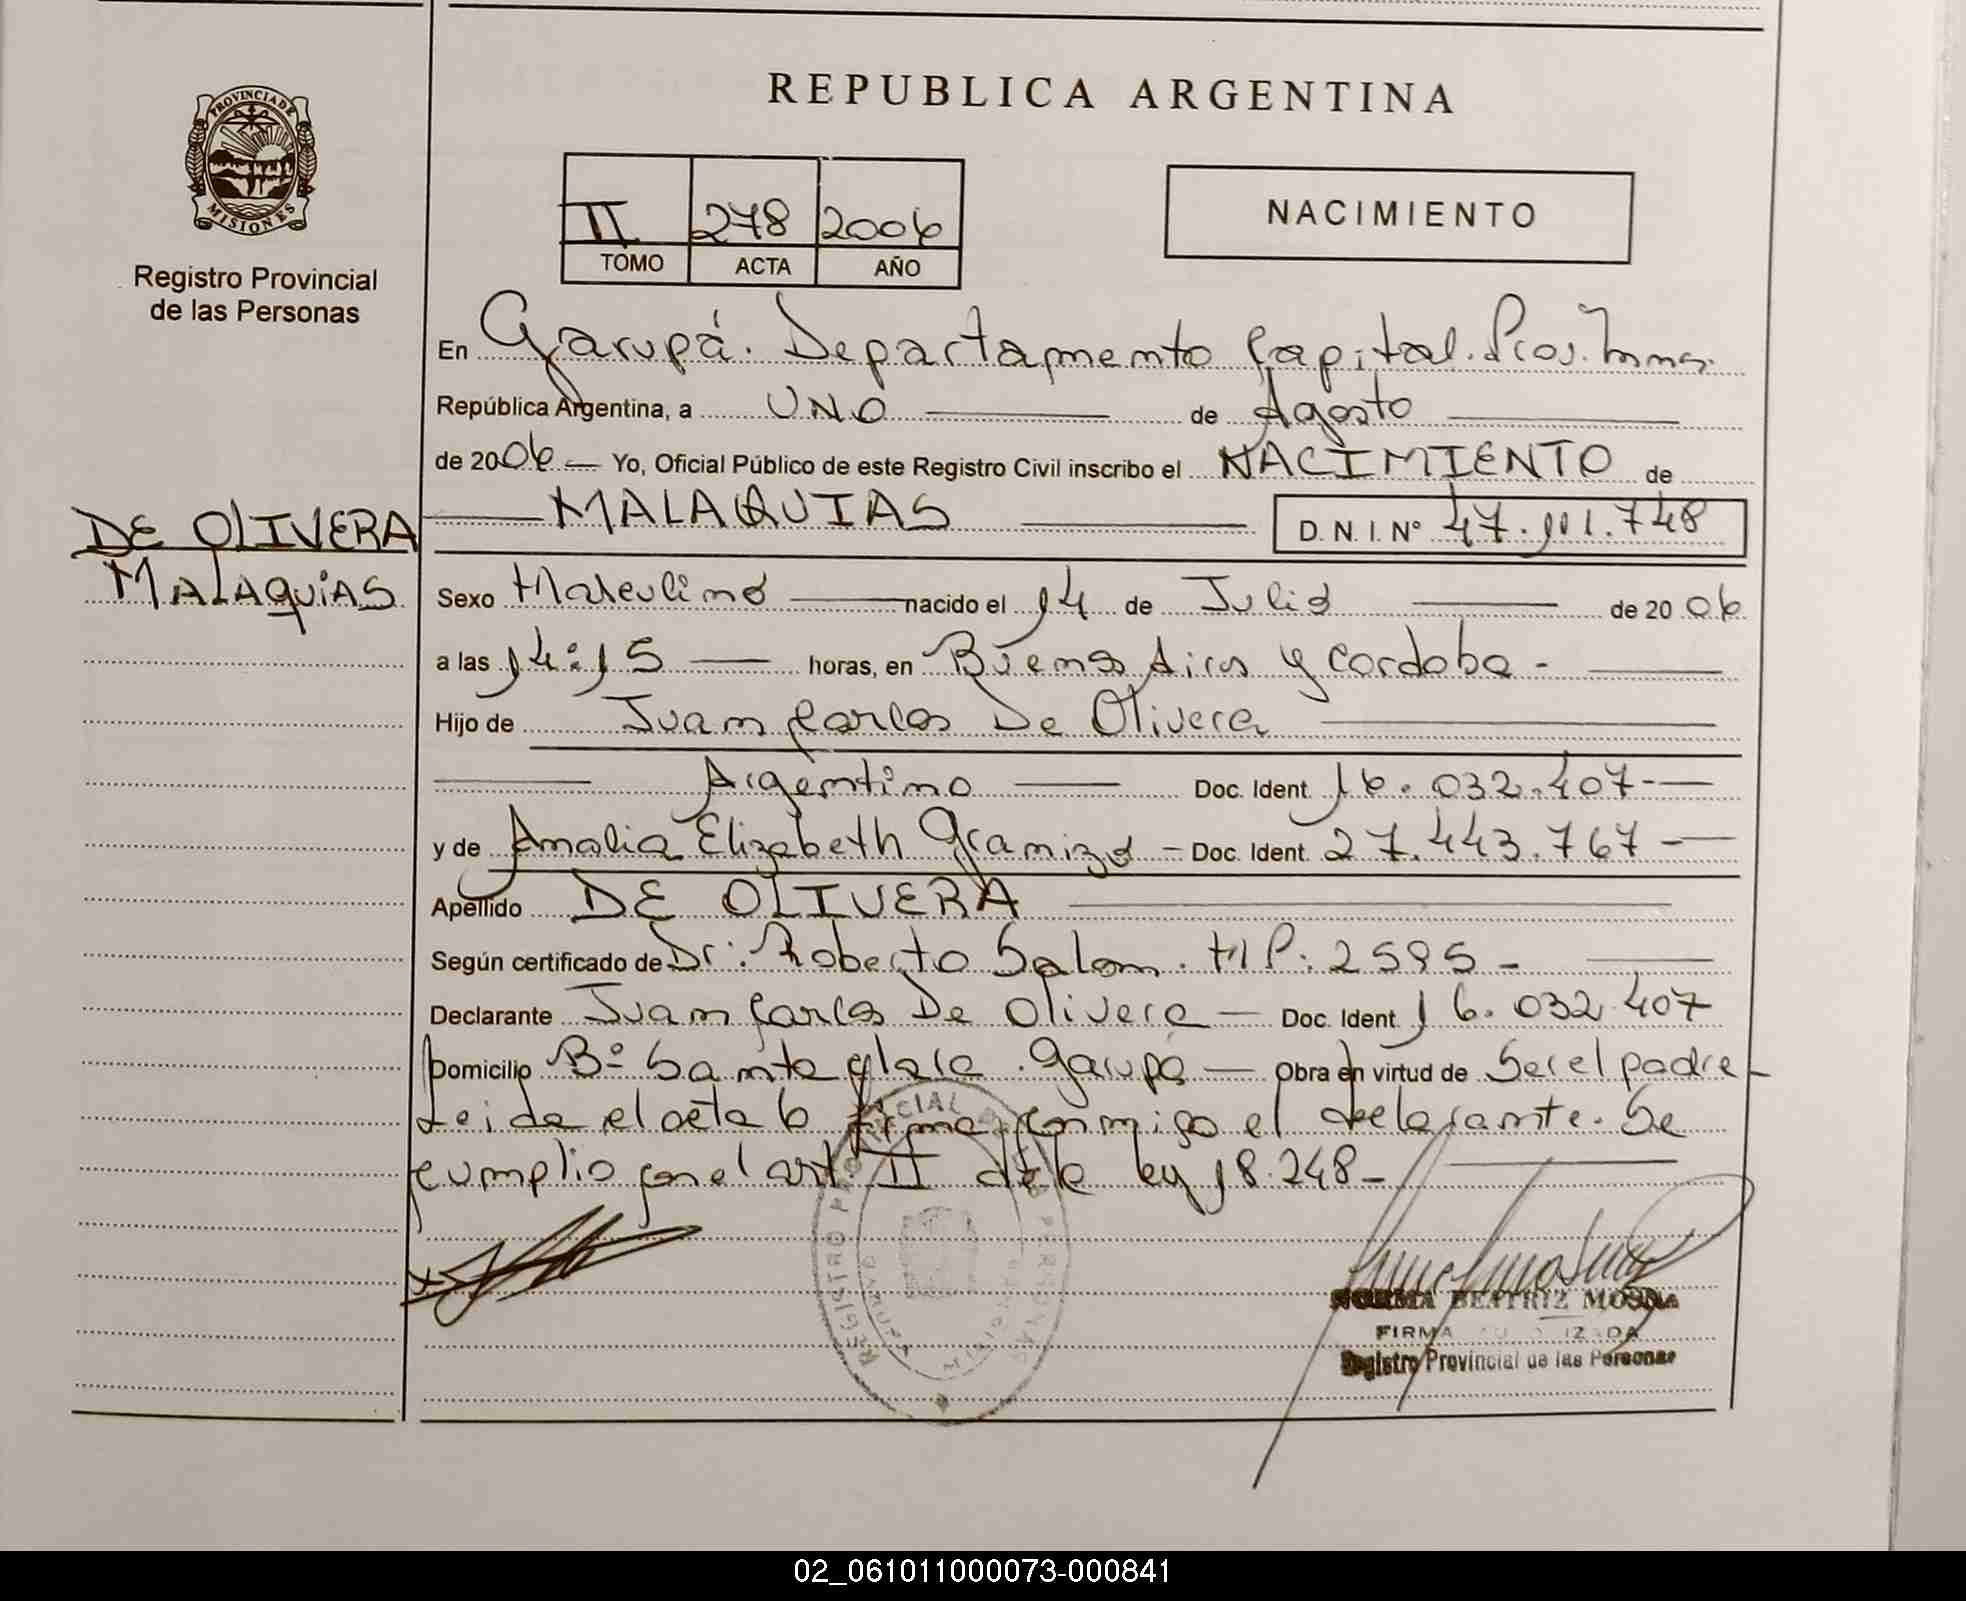 REPUBLICA ARGENTINA
PROVINCIA DE MISIONES
Registro Provincial
de las Personas
II 278 2006
TOMO ACTA AÑO
NACIMIENTO
En Garupá. Departamento Capital. Pcias. Mnes.
República Argentina, a UNO de Agosto
de 2006 Yo, Oficial Público de este Registro Civil inscribo el NACIMIENTO de
MALAQUIAS D. N. I. Nº 47.111.748
DE OLIVERA
MALAQUIAS
Sexo Masculino nacido el 14 de Julio de 2006
a las 14:15 horas, en Buenos Aires y Cordoba -
Hijo de Juan Carlos De Olivera
Argentino Doc. Ident. 16.032.407-
y de Amalia Elizabeth Gramizo - Doc. Ident. 27.443.767-
Apellido DE OLIVERA
Según certificado de Dr: Roberto Salom. M P. 2595 -
Declarante Juan Carlos De Olivera - Doc. Ident 16.032.407
Domicilio Bº Santa Clara. Garupá - Obra en virtud de Ser el padre -
Leida el acta la firma conmigo el declarante. Se
cumplio con el art. II de la ley 18.248-
REGISTRO PROVINCIAL PERSONAS
NORMA BEATRIZ
FIRMA AUTORIZADA
Registro Provincial de las Personas
02_061011000073-000841